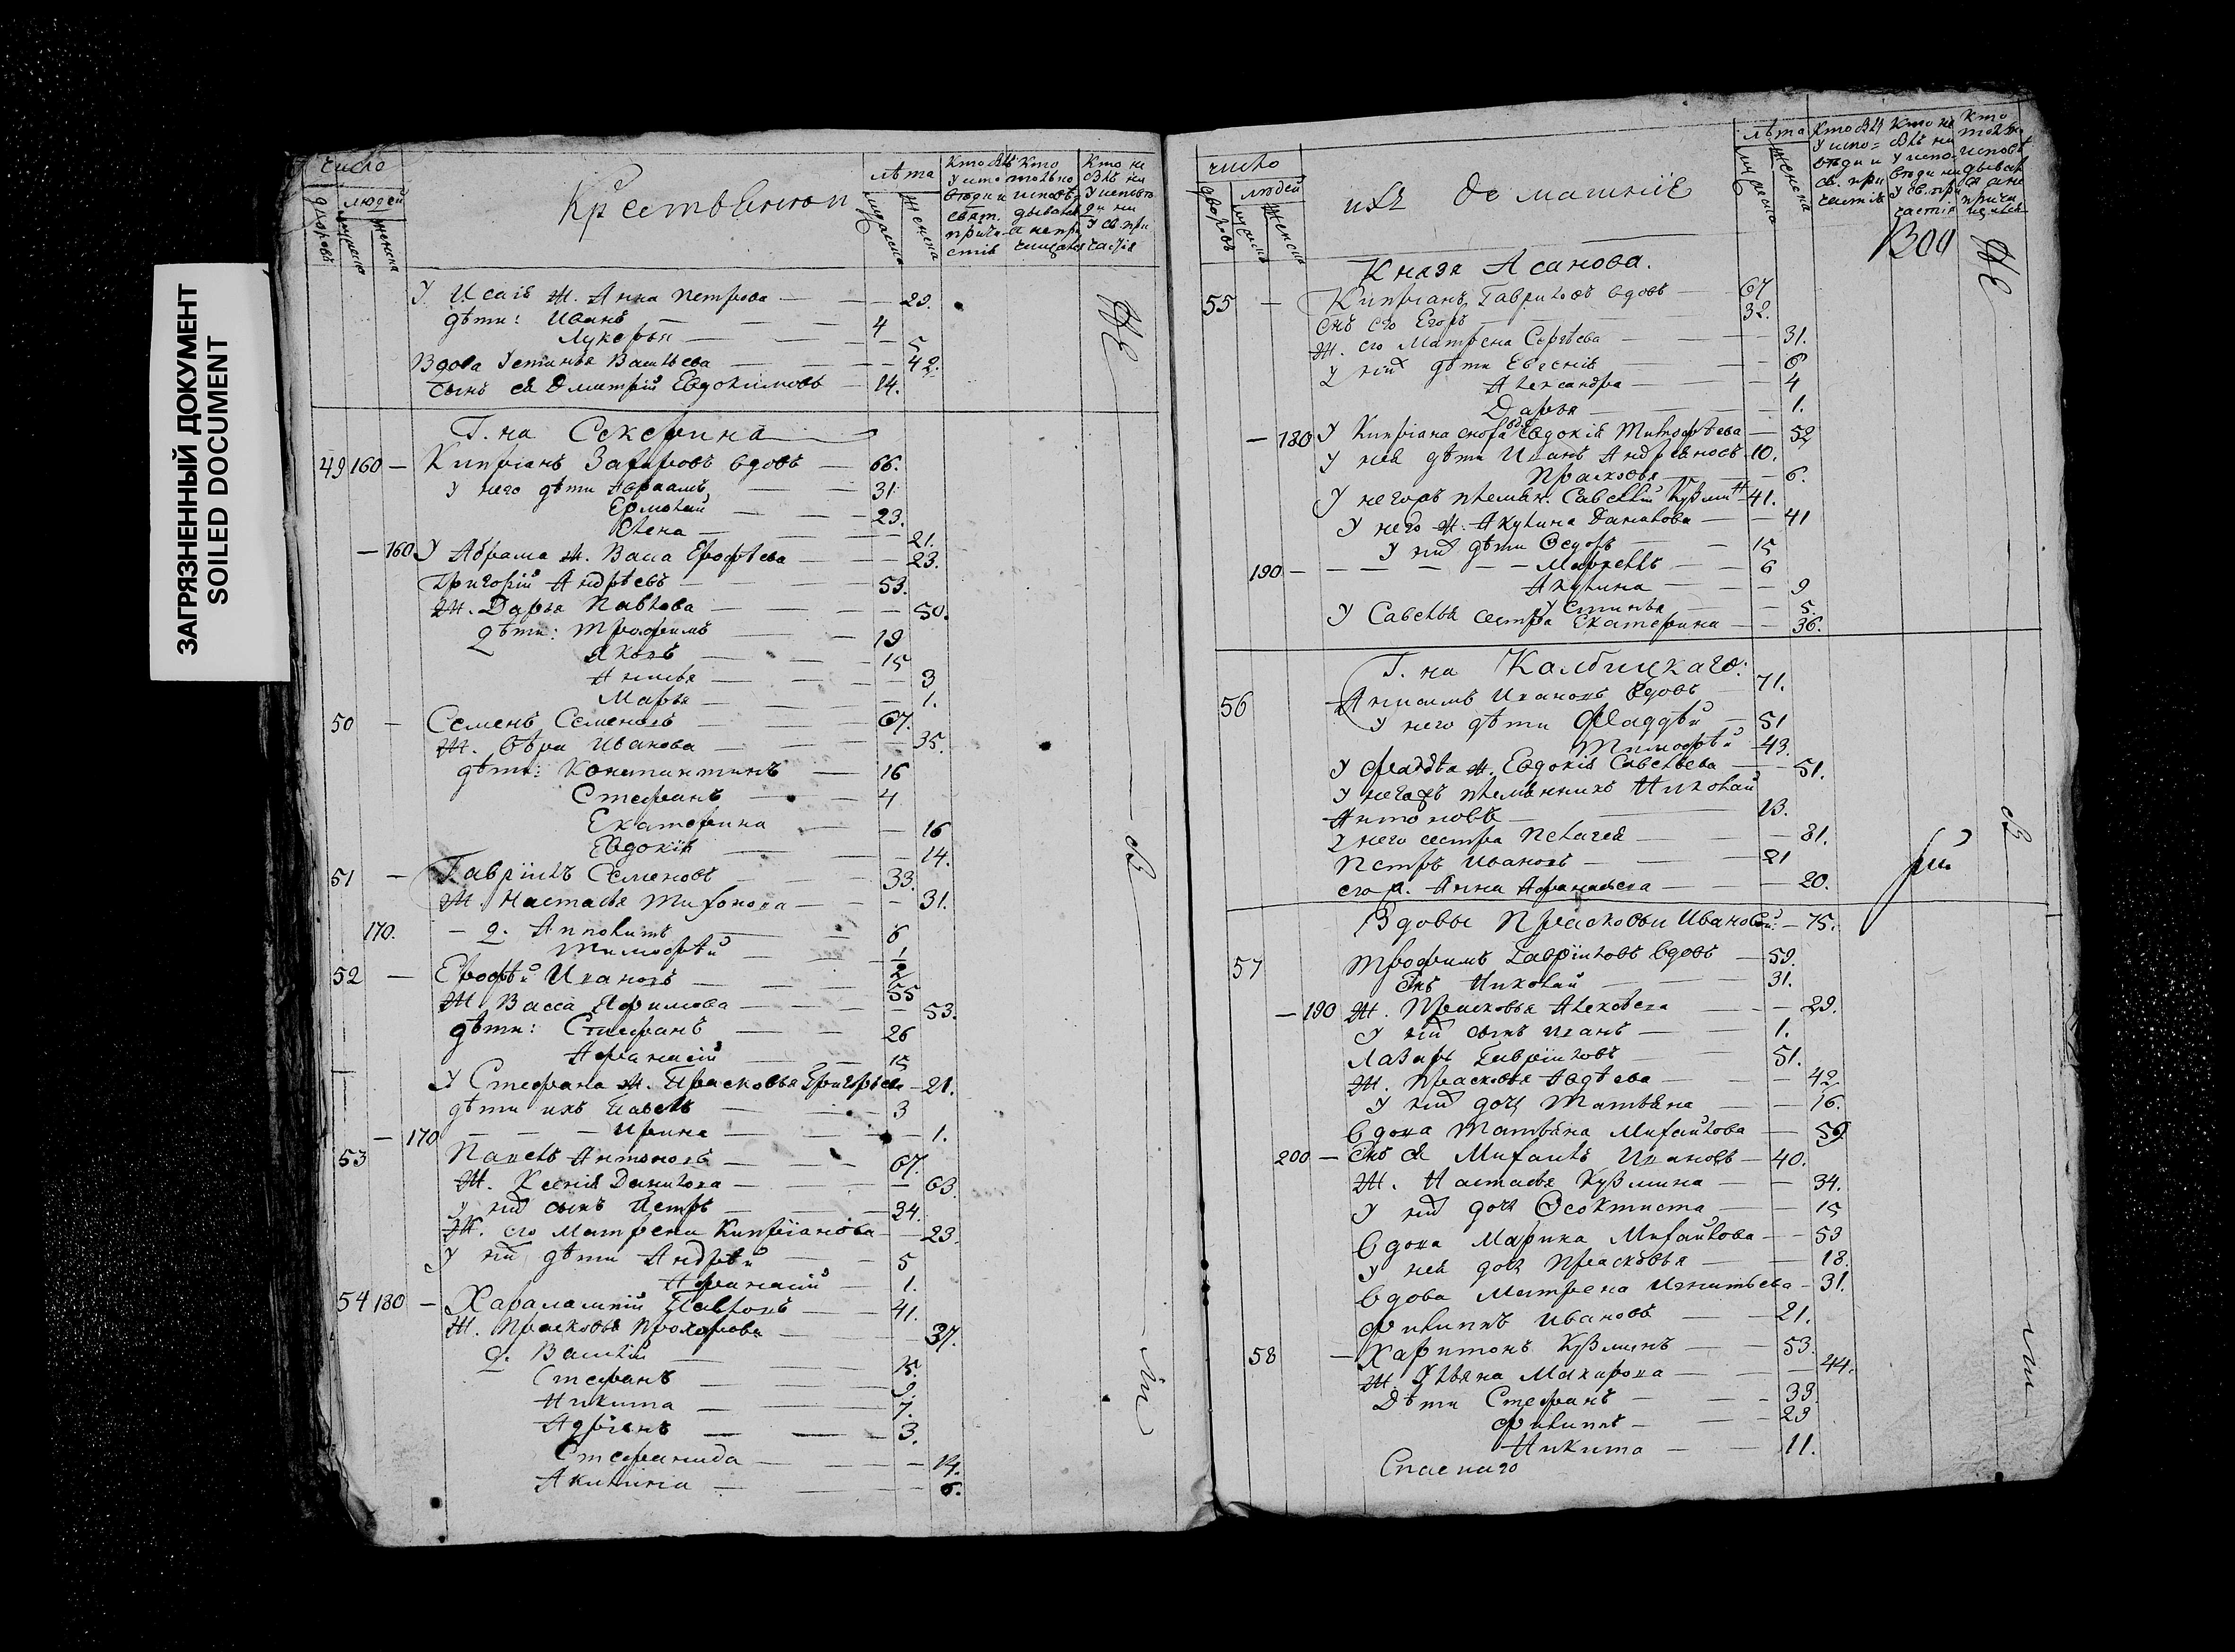 ЗАГРЯЗНЕННЫЙ ДОКУМЕНТ
SOILED DOCUMENT
число
людей
лѣта
Крестьянъ
У Исаіе Ж. Анна Петрова — 29.
дѣти: Иванъ — 4
Лукерья — 5
Вдова Устинья Васильева — 42.
Сынъ ея Дмитрій Евдокимовъ — 14.
Г. на Секерина
49 160 — Кипріанъ Захаровъ вдовъ — 66.
У него дѣти Авраамъ — 31
Ермолай — 23.
Елена — 21.
— 160 У Абрама Ж. Васа Ерофѣева — 23.
Григорій Андрѣевъ — 53.
Ж. Дарья Павлова — 50.
дѣти: Трофимъ — 19
Яковъ — 15
Анисья — 3
Марья — 1.
50 — Семенъ Семеновъ — 67.
Ж. Вѣра Иванова — 35.
дѣти: Константинъ — 16
Стефанъ — 4
Екатерина — 16
Евдокія — 14.
51 — Гавріилъ Семеновъ — 33.
Ж. Настасья Тихонова — 31.
170. — д. Апполонъ — 6
Тимофѣй — 1/2
52 — Ерофѣй Ивановъ — 55
Ж. Васса Ефимова — 53.
дѣти: Стефанъ — 26
Афанасій — 15
У Стефана Ж. Прасковья Григорьева — 21.
дѣти ихъ Павелъ — 3
— 170 — Ирина — 1.
53 Павелъ Антоновъ — 67.
Ж. Ксенія Данилова — 63.
у них сынъ Петръ — 24.
Ж. его Матрена Кипріанова — 23.
У них дѣти Андрѣй — 5
Афанасій — 1.
54 180 — Харалампій Павловъ — 41.
Ж. Прасковья Прохорова — 37.
д. Василій — 15.
Стефанъ — 9.
Никита — 7.
Адріянъ — 3.
Стефанида — 14.
Акилина — 6.
число
людей
лѣта
ихъ домашніе
Князя Асанова.
55 — Кипріанъ Гавриловъ вдовъ — 67
Снъ его Егоръ — 32.
Ж. его Матрена Сергѣева — 31.
У них дѣти Евгенія — 6
Александра — 4
Дарья — 1.
— 180 У Кипріана сноха вд. Евдокія Тимофѣева — 52
У нея дѣти Иванъ Андреяновъ 10.
Прасковья — 6.
У него жъ племян. Савелій Кузмин 41.
У него Ж. Акулина Данилова — 41
У них дѣти Ѳедоръ — 15
190 — Маркеллъ — 6
Акулина — 9
Устинья — 5.
У Савелья сестра Екатерина — 36.
Г. на Калбицкаго:
56 Анисимъ Ивановъ вдовъ — 71.
У него дѣти Фаддѣй — 51
Тимофѣй — 43.
У Фаддѣа Ж. Евдокія Савельева — 51.
У него жъ племянникъ Николай
Антоновъ — 13.
У него сестра Пелагея — 31.
Петръ Ивановъ — 21
его ж. Анна Афанасьева — 20.
Вдовы Прасковьи Ивановой. — 75.
57 Трофимъ Гавріиловъ вдовъ — 59.
Снъ Николай — 31.
— 190 Ж. Прасковья Алексѣева — 29.
У них сынъ Иванъ — 1.
Лазарь Гавріиловъ — 51.
Ж. Прасковья Авдѣева — 42
У них дочь Татьяна — 16.
Вдова Татьяна Михайлова — 59
200 — Снъ ея Михаилъ Ивановъ — 40.
Ж. Настасья Кузмина — 34.
У них дочь Ѳеоктиста — 15
Вдова Марина Михайлова — 53
У нея дочь Прасковья — 18.
Вдова Матрена Игнатьева — 31.
Филиппъ Ивановъ — 21.
58 — Харитонъ Кузминъ — 53.
Ж. Ульяна Макарова — 44.
Дѣти Стефанъ — 33
Филиппъ — 23
Никита — 11.
Спаснаго